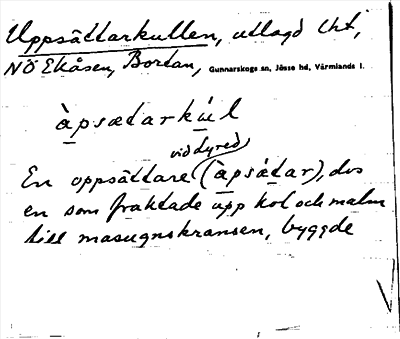 Uppsättarkullen, utlagd lht,
NÖ Ekåsen, Bortan, Gunnarskogs sn, Jösse hd, Värmlands l.
àpsætarkúl
vid dyred
En oppsättare (àpsátar), dvs
en som fraktade upp kol och malm
till masugnskransen, byggde